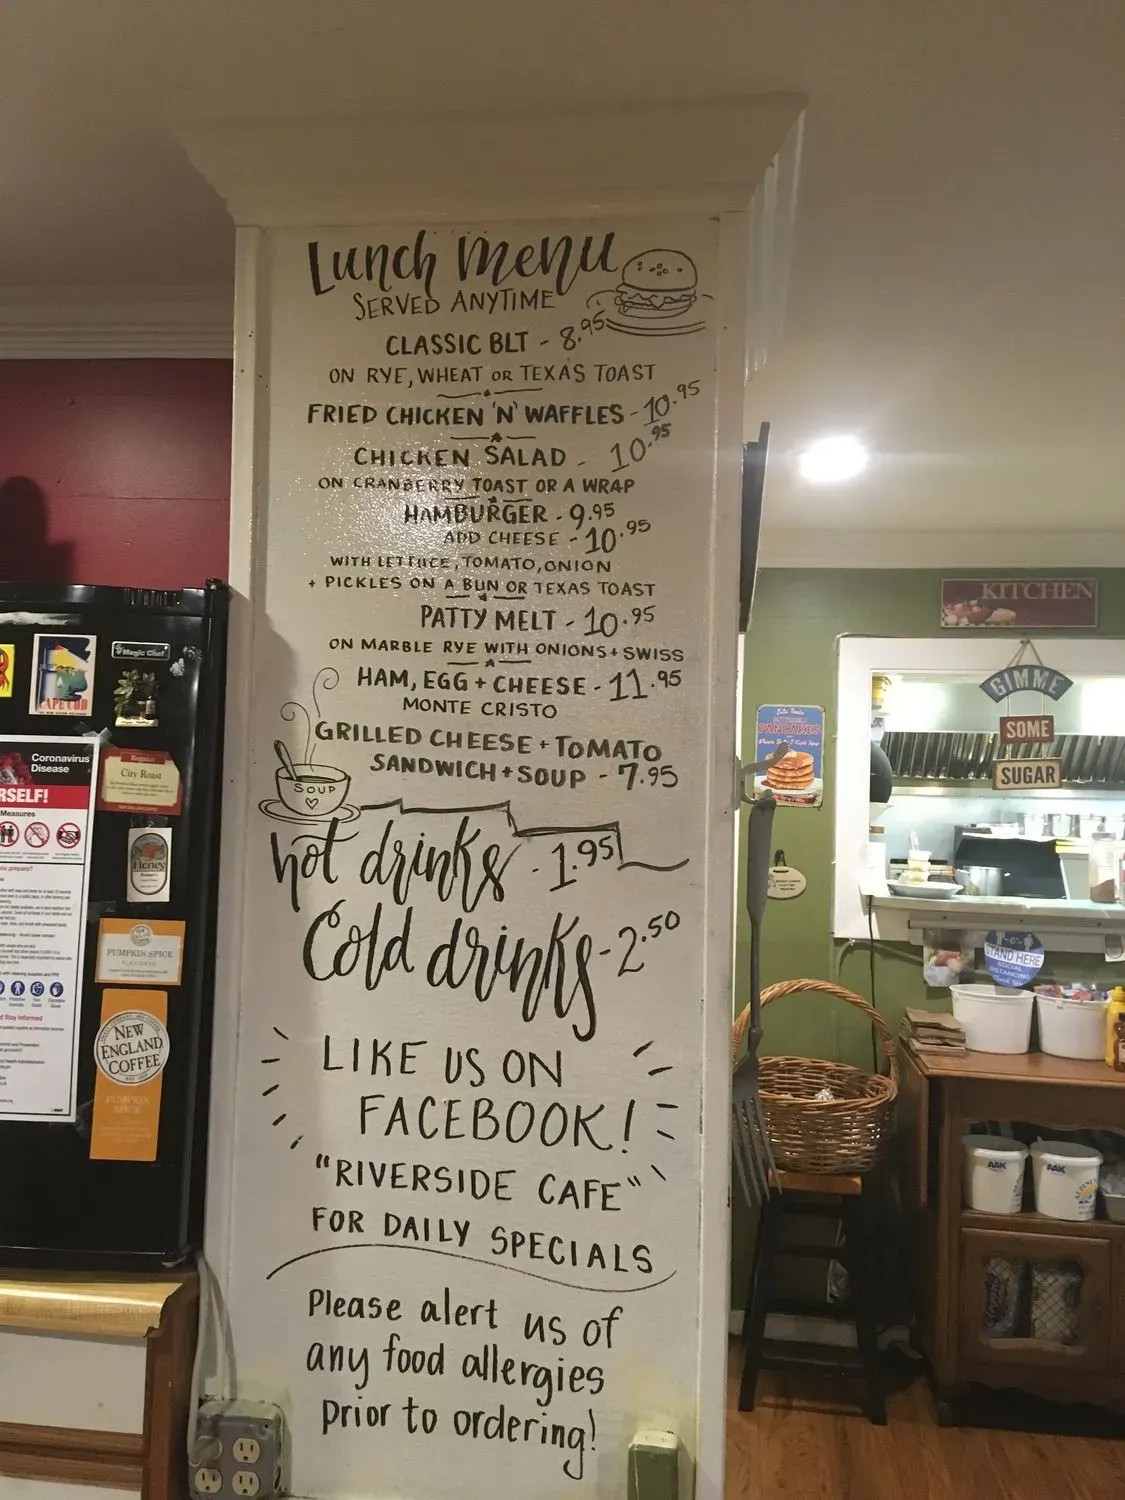 Lunch menu
SERVED ANYTIME
CLASSIC BLT - 8.95
ON RYE, WHEAT OR TEXAS TOAST
FRIED CHICKEN 'N' WAFFLES - 10.95
CHICKEN SALAD - 10.95
ON CRANBERRY TOAST OR A WRAP
HAMBURGER - 9.95
ADD CHEESE - 10.95
WITH LETTUCE, TOMATO, ONION
+ PICKLES ON A BUN OR TEXAS TOAST
PATTY MELT - 10.95
ON MARBLE RYE WITH ONIONS + SWISS
HAM, EGG + CHEESE - 11.95
MONTE CRISTO
GRILLED CHEESE + TOMATO
SANDWICH + SOUP - 7.95
SOUP
hot drinks - 1.95
Cold drinks - 2.50
LIKE US ON
FACEBOOK!
"RIVERSIDE CAFE"
FOR DAILY SPECIALS
Please alert us of
any food allergies
prior to ordering!
Magic Chef
CAPE COD
Coronavirus
Disease
RSELF!
Measures
Regular
City Roast
Honey
PUMPKIN SPICE
FLAVORED
NEW
ENGLAND
COFFEE
PUMPKIN
SPICE
KITCHEN
GIMME
SOME
SUGAR
PANCAKES
6'
STAND HERE
SOCIAL
DISTANCING
AAK
AAK